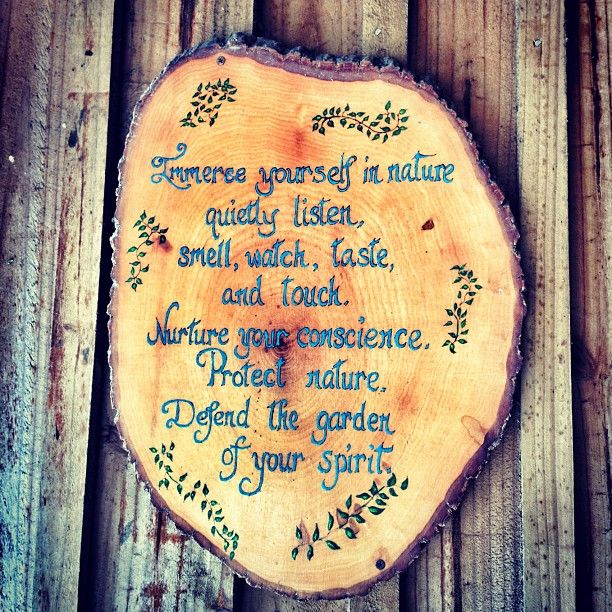 Immerse yourself in nature
quietly listen,
smell, watch, taste,
and touch.
Nurture your conscience.
Protect nature.
Defend the garden
of your spirit.